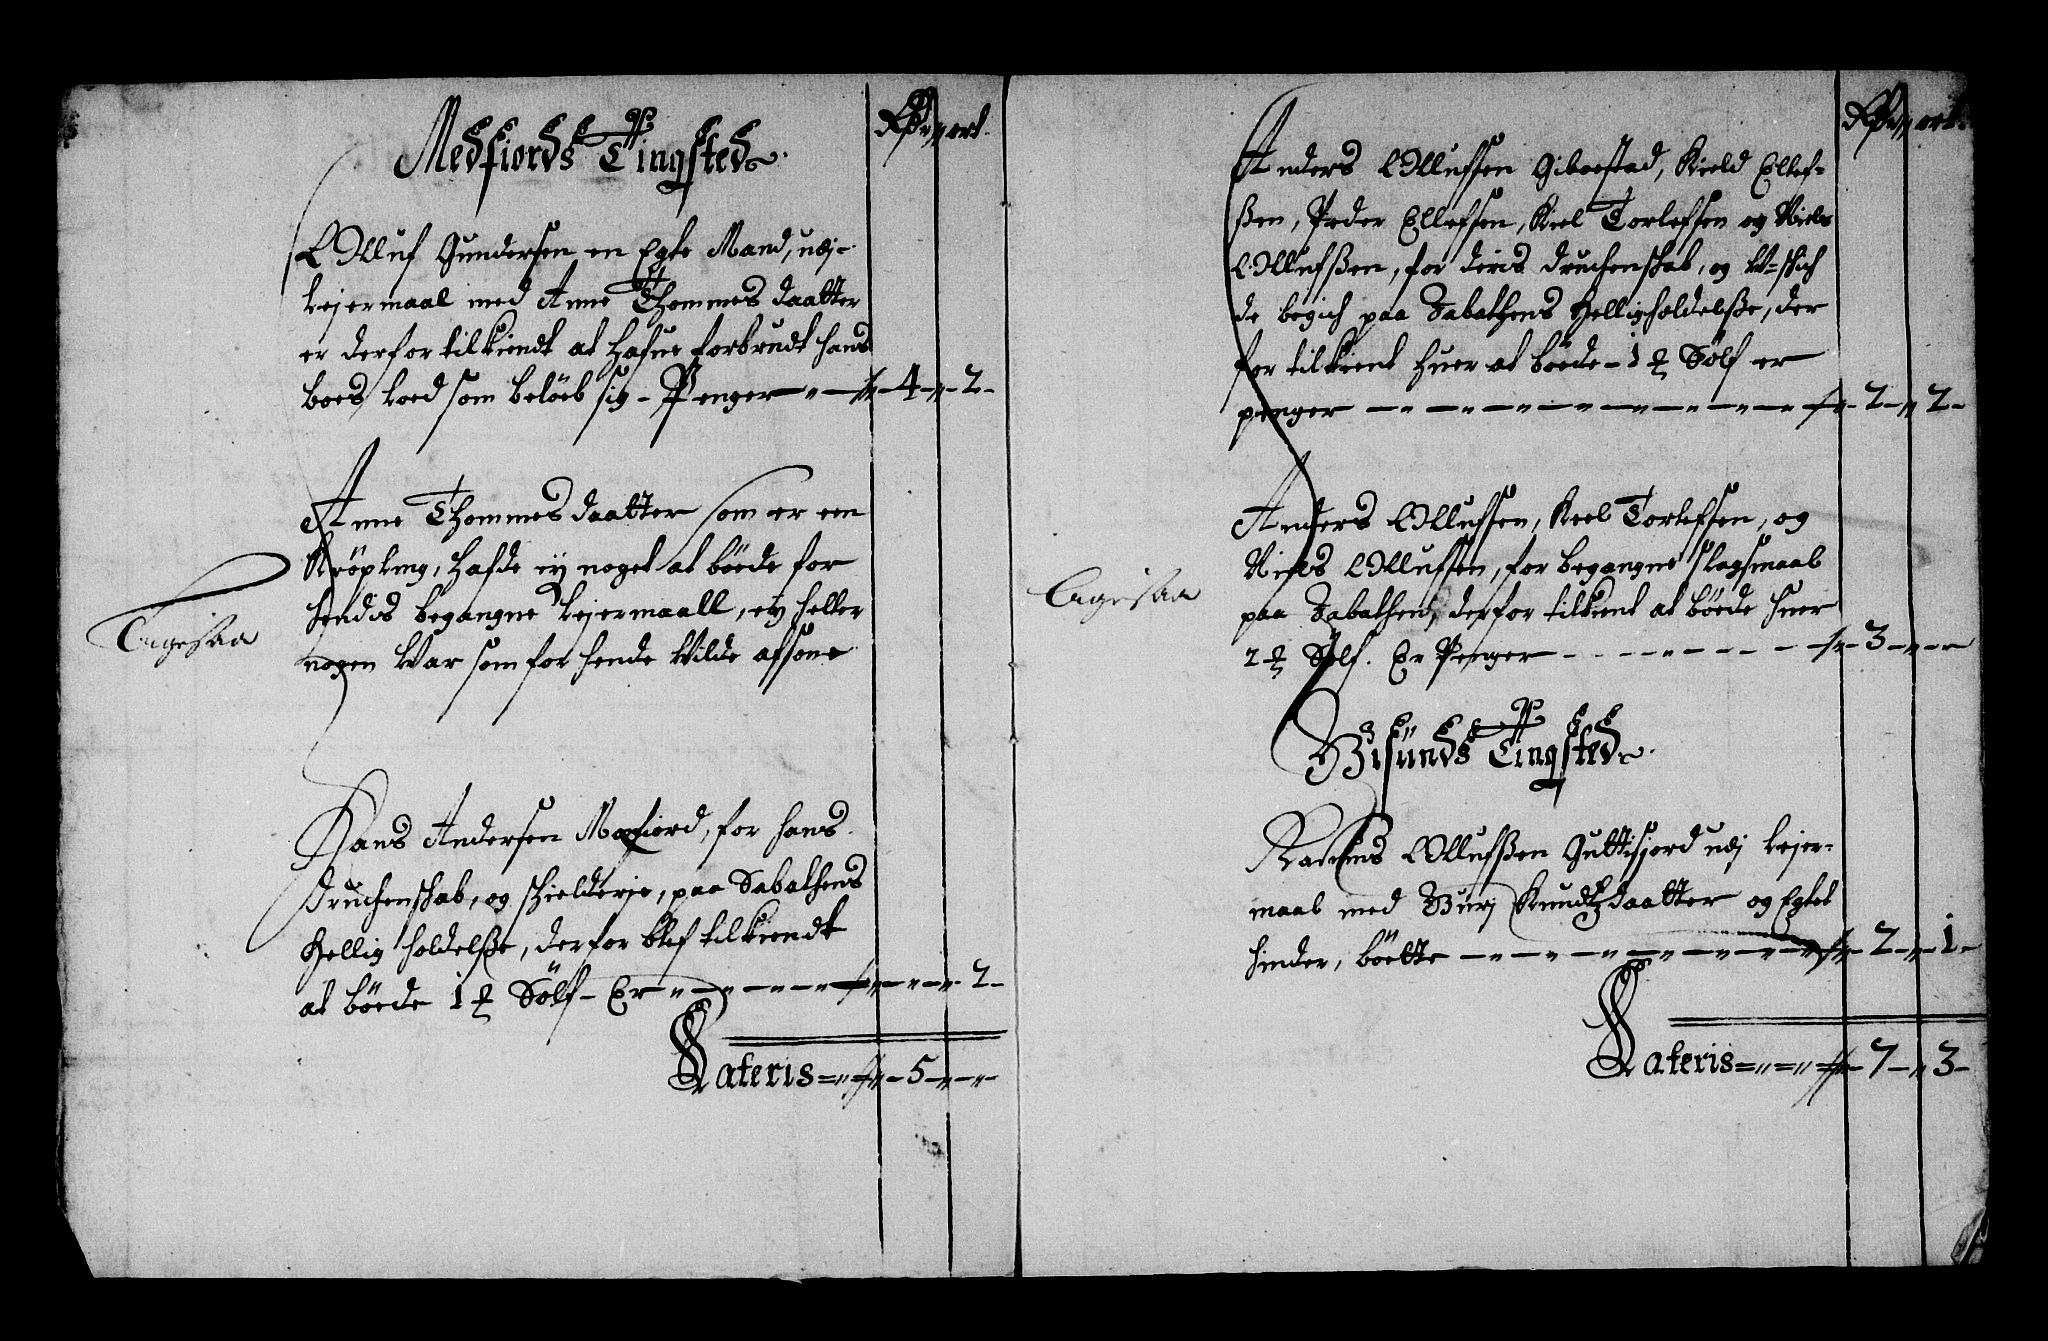 Rdr ort.
Medfiords Tingsted
Olluf Gundersen en Egte Mand, udj-
lejermaal med Anne Thommes daatter
er derfor tilkiendt at hafue forbrudt hans
boes lod som beløeb sig - Penger - 4 - 2 -
Anne Thommes daatter som er een
Krøpling, hafde ej noget at bøede for
hendis begangne lejermaall, ey heller
nogen War som for hende Wilde afsone
Tagesaa
Hans Andersen Mefiord, for hans
druchenskab, og skielderje, paa Sabathens
Hellig holdelsße, derfor blef tilkiendt
at bøede 1 ℔ Sølf - Er - 2 -
Lateris - 5 -
Rdr ort.
Anders Ollufsen Giboestad, Kield Ellef-
ßen, Peder Ellefsen, Kiel Torlefsen og Niels
Ollufsßen, for deris druchenskab, og W-skich
de begich paa Sabathens Helligholdelsße, der
for tilkient huer at bøede - 1 ℔ Sølf er
penger - 2 - 2 -
Anders Ollufsen, Keel Torlefsen, og
Niels Ollufsen, for begangne slagsmaal
paa Sabathen, derfor tilkient at bøede huer
2 ℔ Sølf. Er Penger - 3 -
Tagesaa
Gisunds Tingsted
Rasmus Ollufsßen Guttisjord udj lejer-
maal med Burj Knudtzdaatter og Egtet
hinder, bøette - 2 - 1 -
Lateris - 7 - 3 -